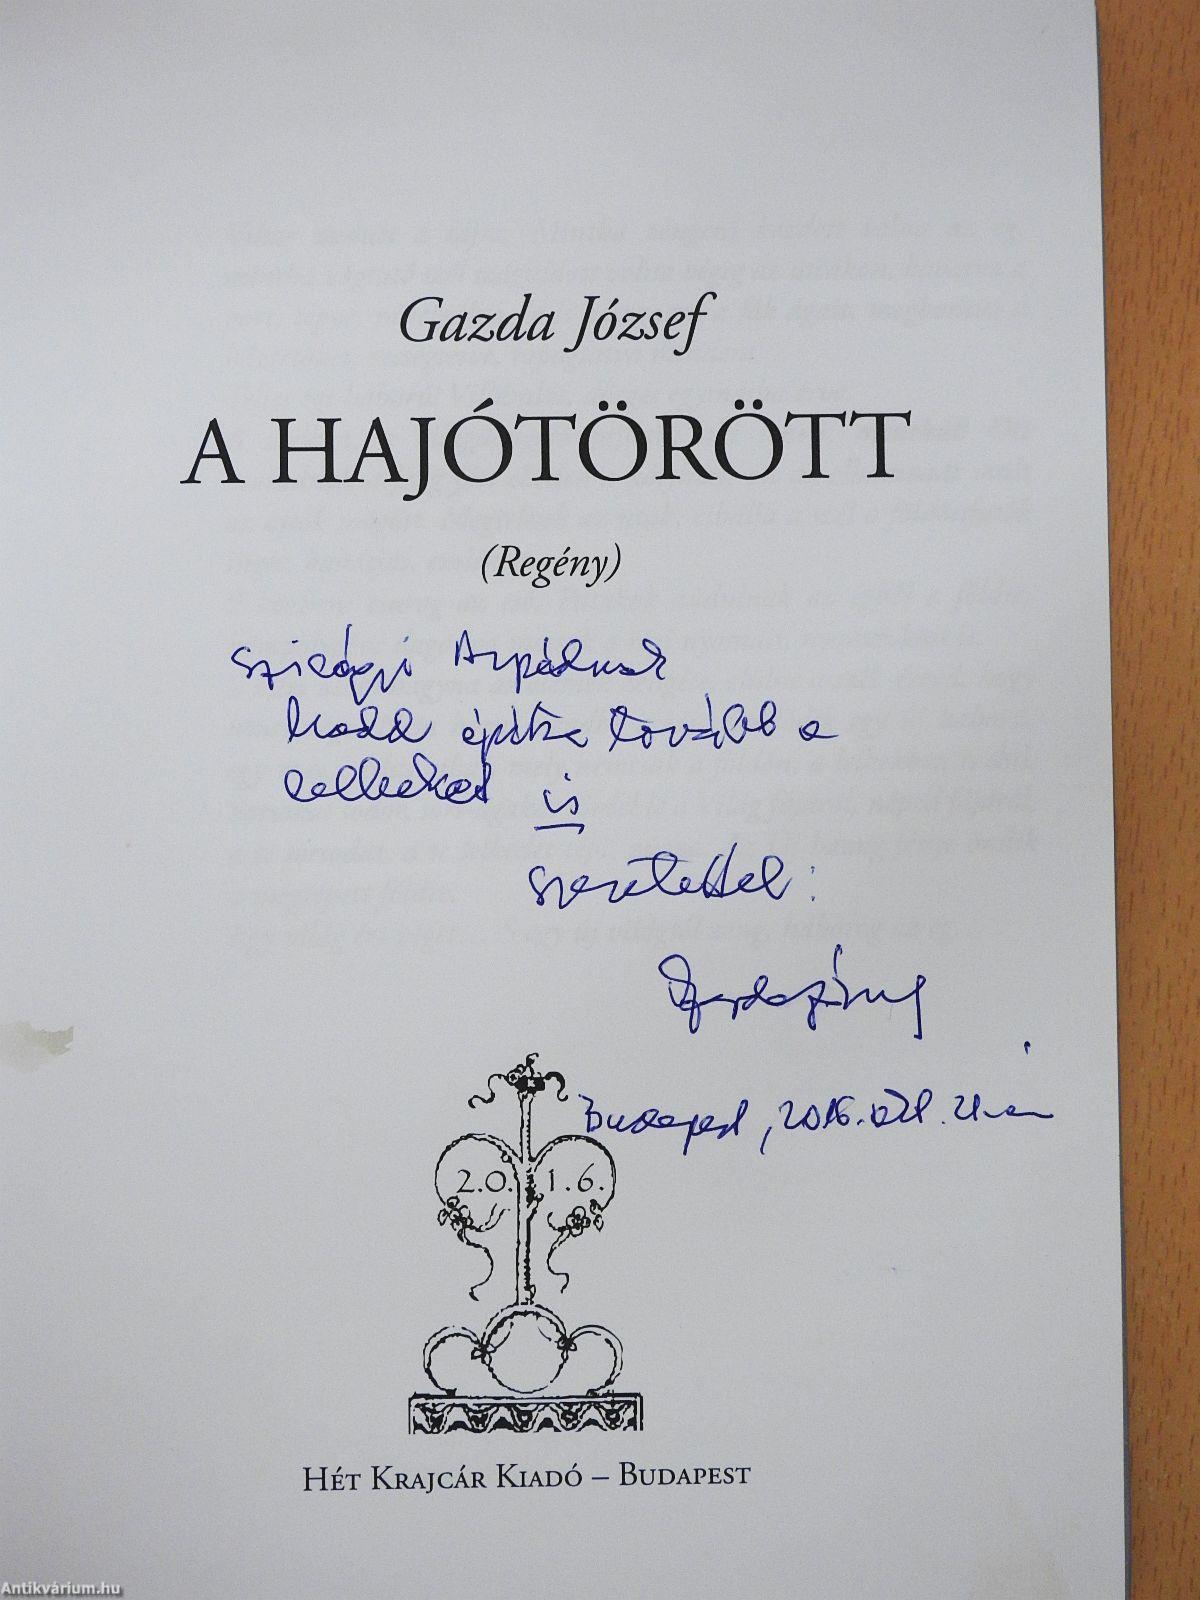 Gazda József
A HAJÓTÖRÖTT
(Regény)
Szilágyi Árpádnak
hadd építse tovább a
lelkeket is
szeretettel:
Gazda József
Budapest, 2016. okt. 21-én
2.0. 1.6.
HÉT KRAJCÁR KIADÓ – BUDAPEST
Antikvárium.hu